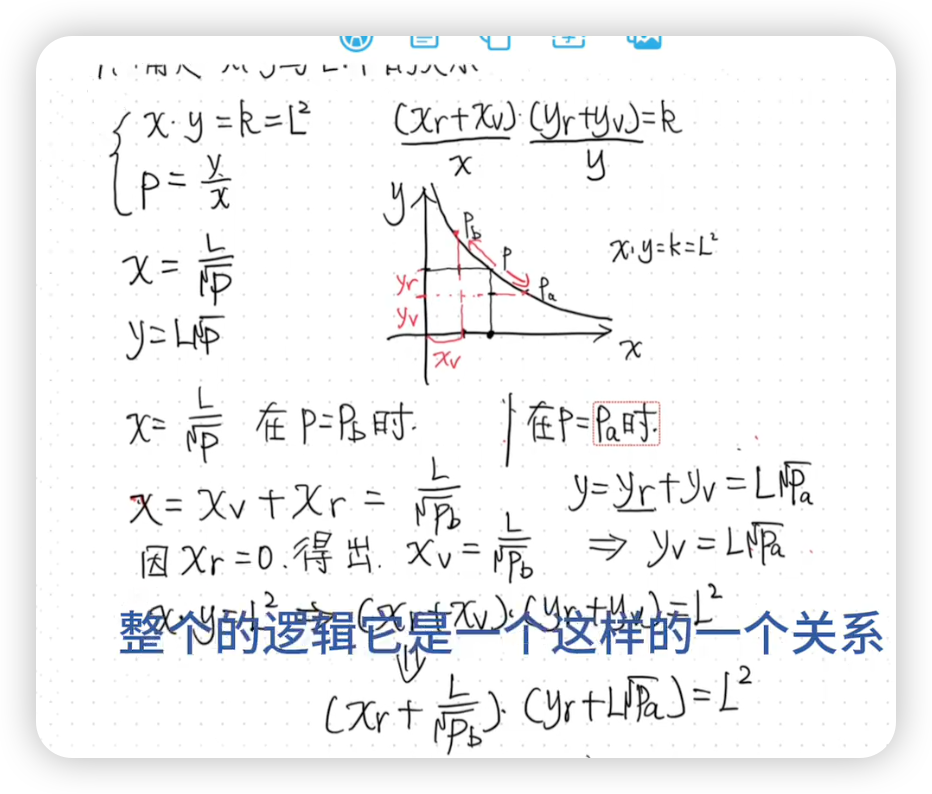 x·y=k=L² (xr+xv)·(yr+yv)=k
x y
p=y/x
y
Pb
P
x·y=k=L²
Pa
yr
yv
xv
x
x=L/√P
y=L√P
x=L/√P 在P=Pb时. 在P=Pa时.
x=xv+xr=L/√Pb y=yr+yv=L√Pa
因xr=0.得出. xv=L/√Pb ⇒ yv=L√Pa
x·y=L² ⇒ (xr+xv)·(yr+yv)=L²
整个的逻辑它是一个这样的一个关系
⇓
(xr+L/√Pb)·(yr+L√Pa)=L²